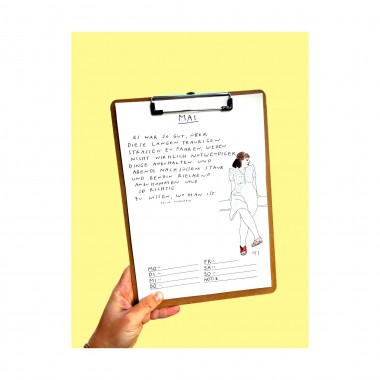 MAI
ES WAR SO GUT, ÜBER
DIESE LANGEN TRAURIGEN
STRASSEN ZU FAHREN, WEGEN
NICHT WIRKLICH NOTWENDIGER
DINGE ANZUHALTEN UND
ABENDS NACH SÜSSEM STAUB
UND BENZIN RIECHEND
ANZUKOMMEN UND
SO RICHTIG
ZU WISSEN, WO MAN IST
MO--
DI--
MI--
DO--
FR--
SA--
SO--
NOTIZ